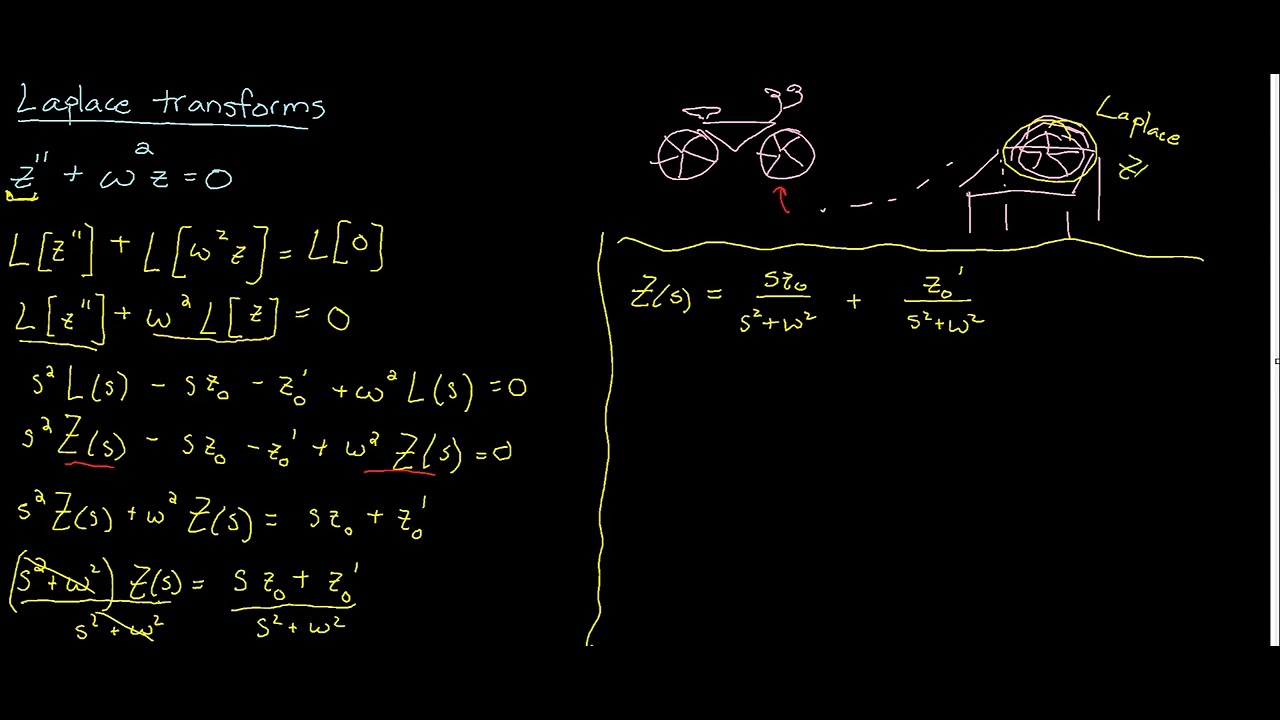 Laplace transforms
z'' + ω²z = 0
L[z''] + L[ω²z] = L[0]
L[z''] + ω²L[z] = 0
s²L(s) - sz₀ - z₀' + ω²L(s) = 0
s²Z(s) - sz₀ - z₀' + ω²Z(s) = 0
s²Z(s) + ω²Z(s) = sz₀ + z₀'
(s² + ω²)Z(s) / s² + ω² = sz₀ + z₀' / s² + ω²
Laplace
Z
Z(s) = sz₀ / s² + ω² + z₀' / s² + ω²